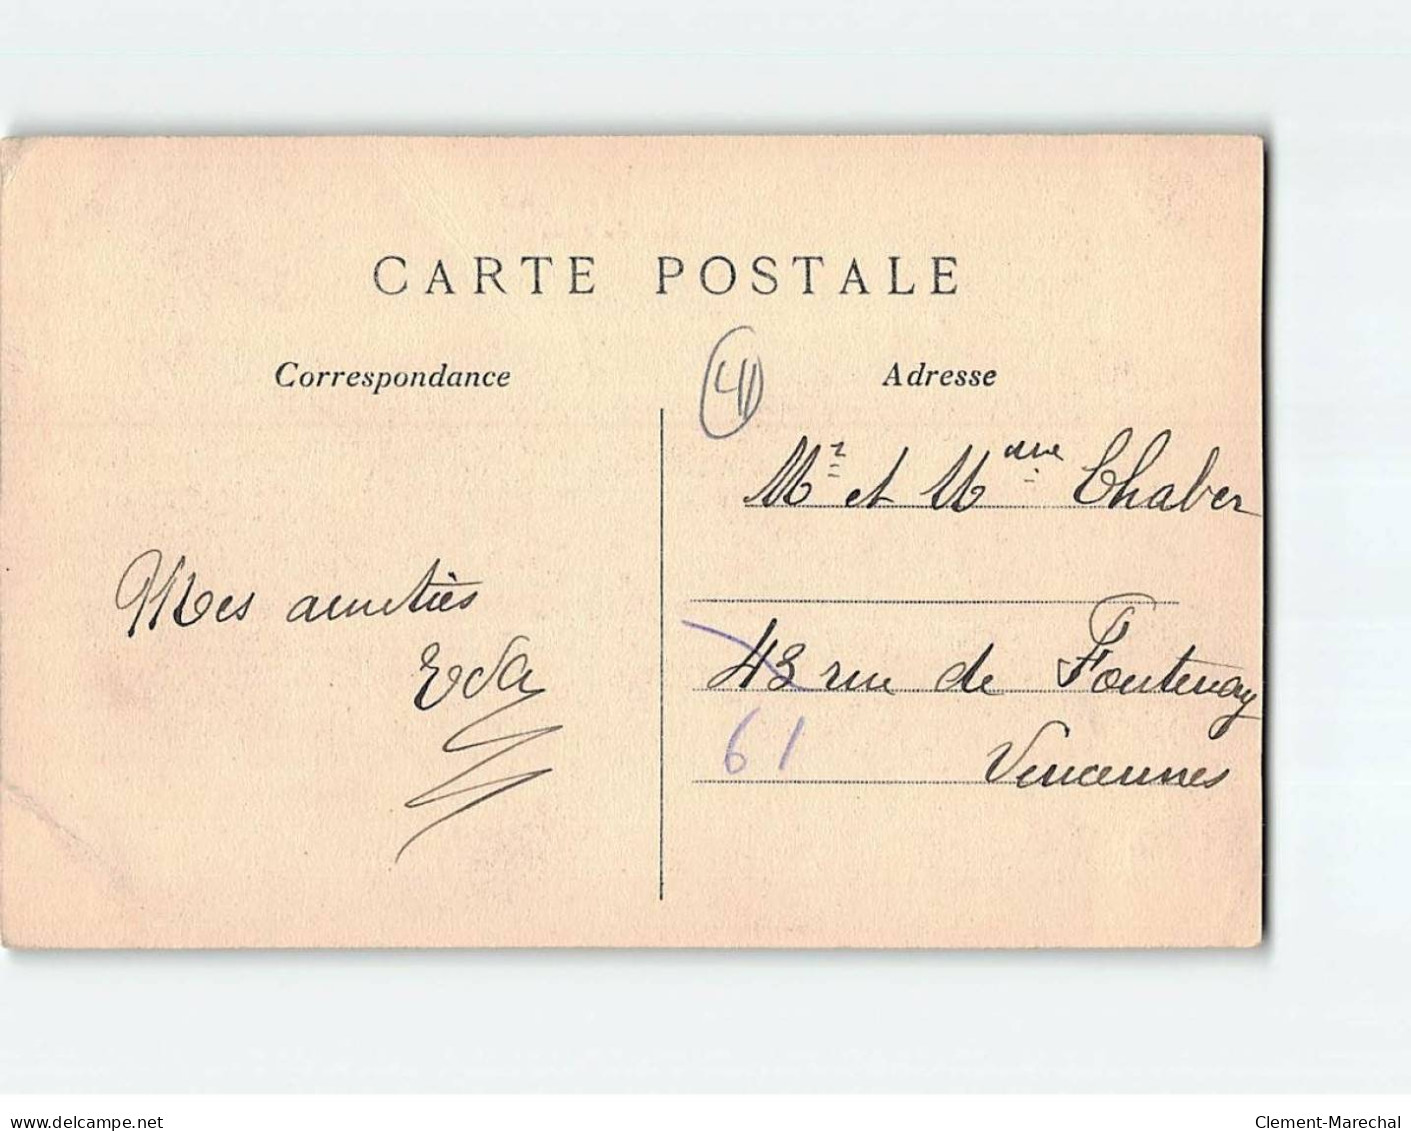 CARTE POSTALE
Correspondance
Adresse
41
Mr et Mme Chaber
Mes amitiés
Eda
43 rue de Fontenay
61
Vincennes
delcampe.net
Clement-Marechal